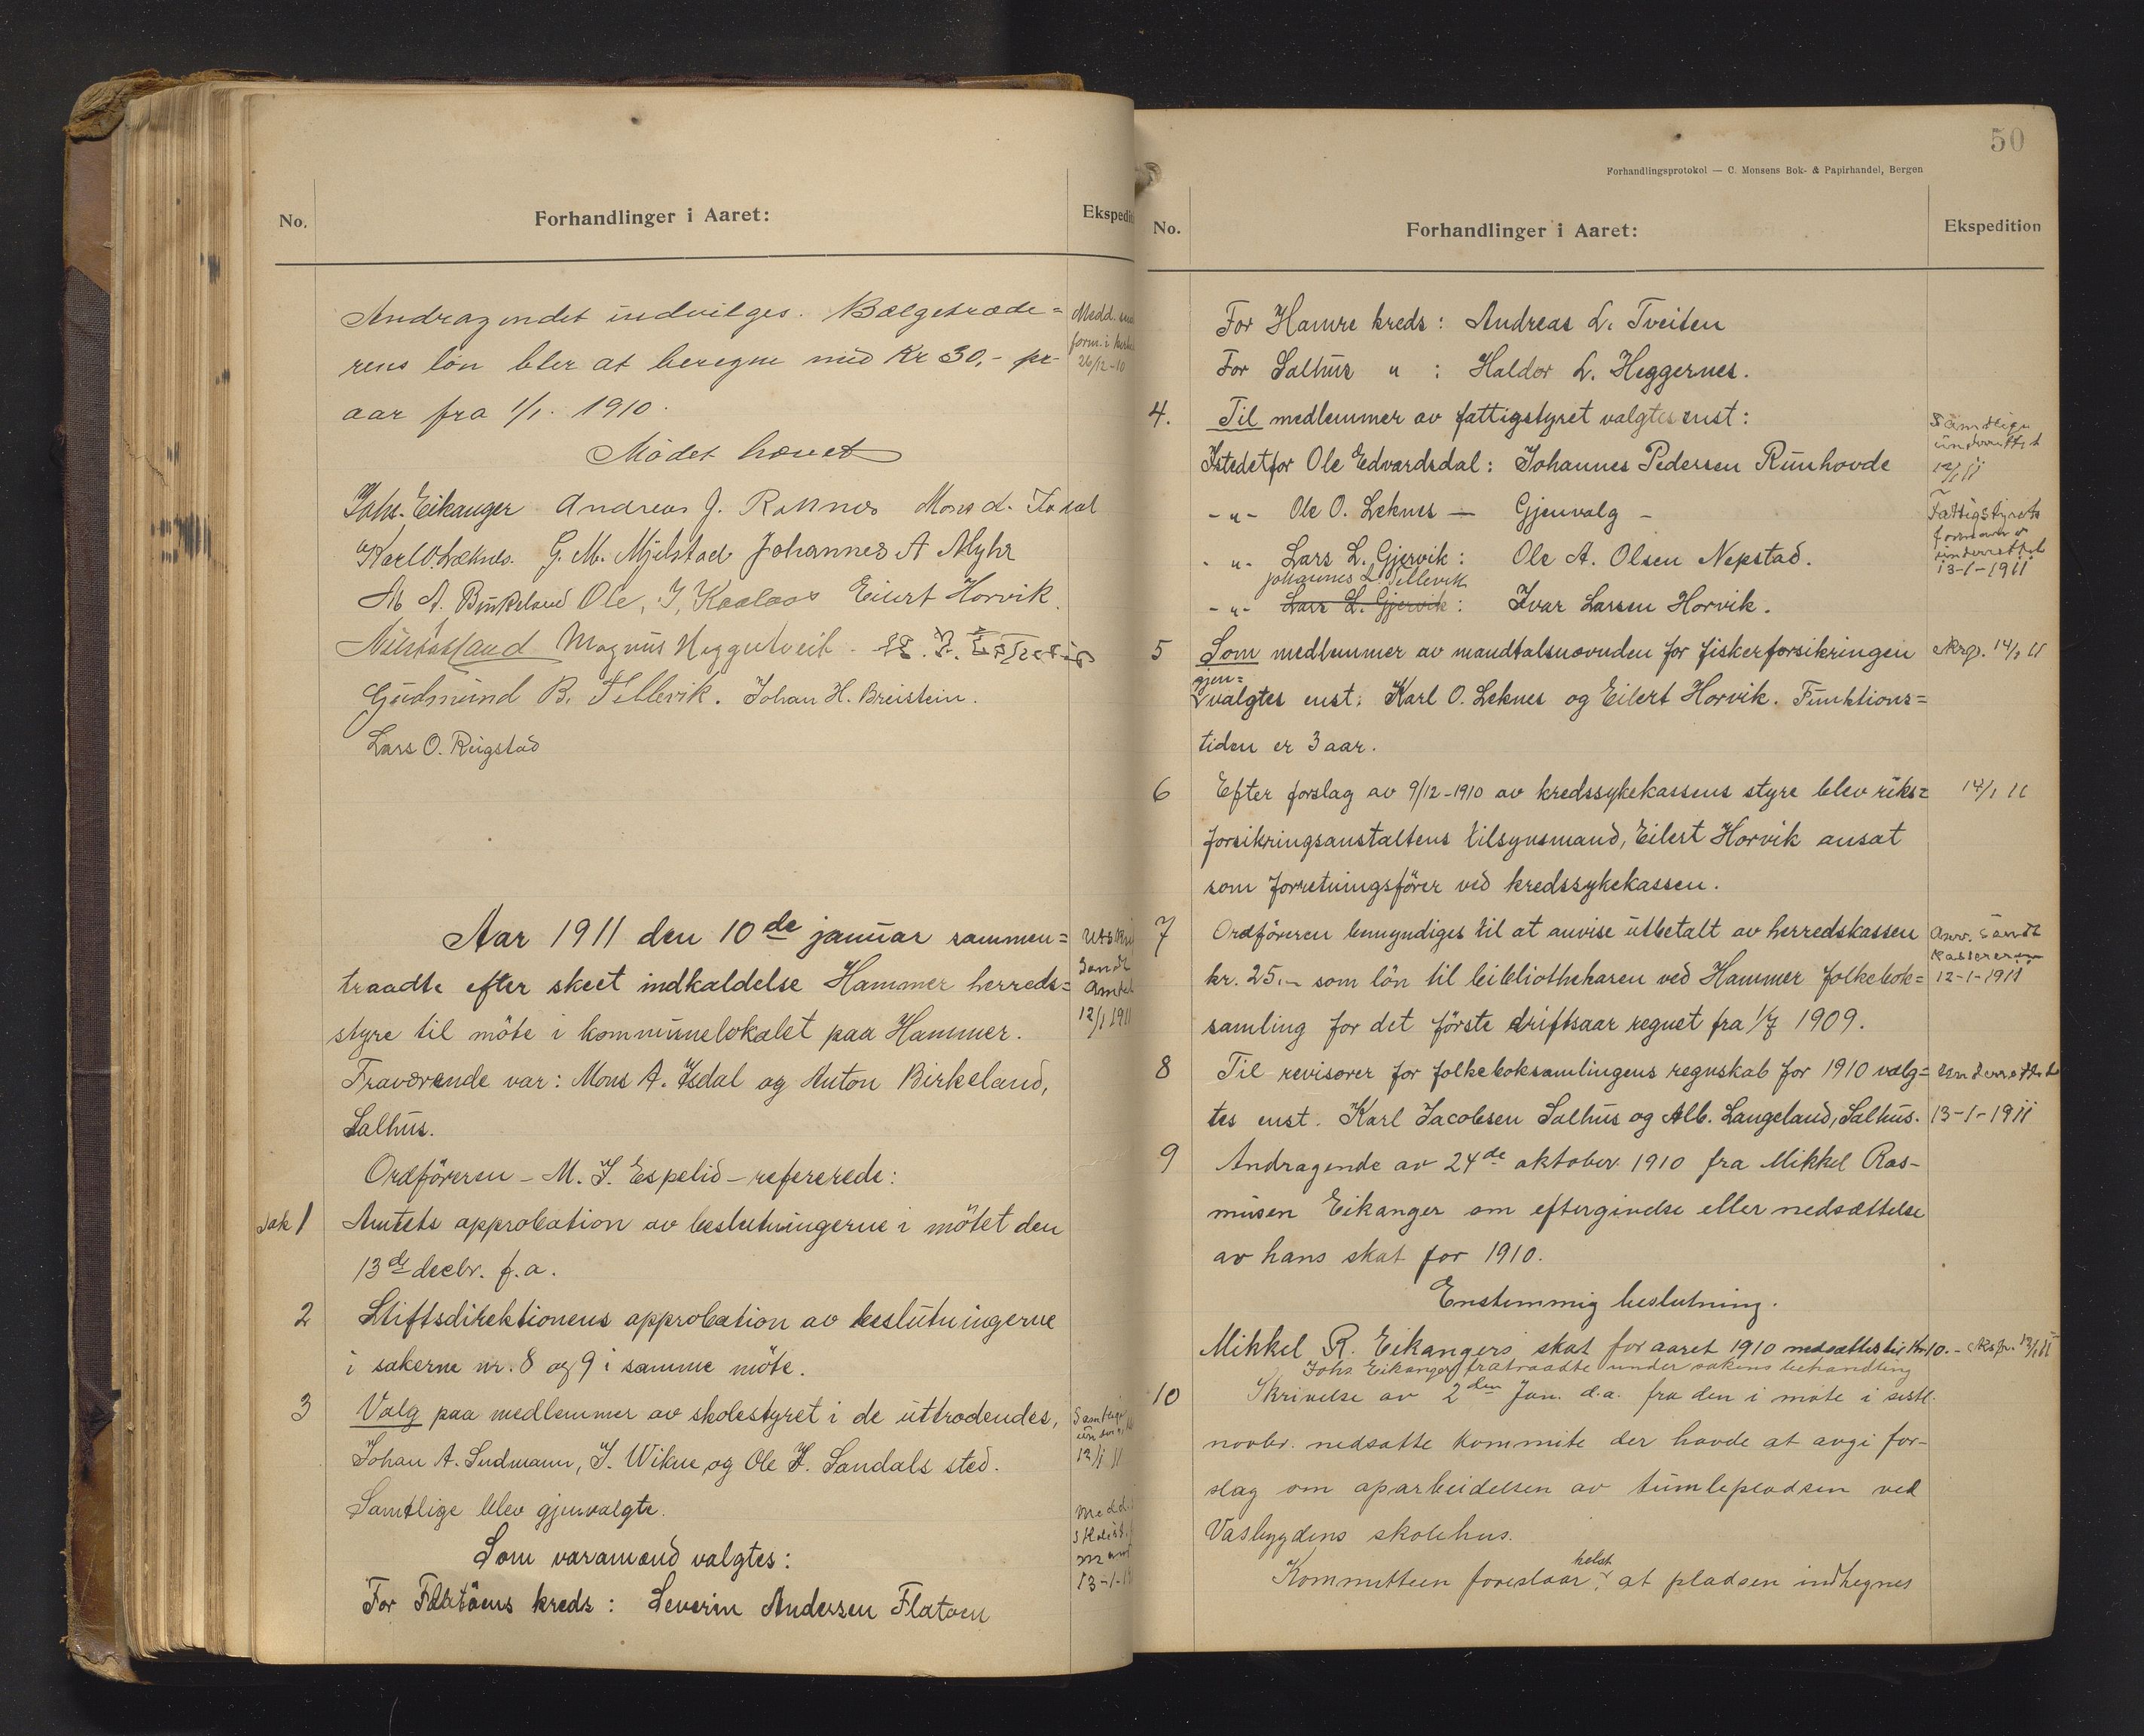 No.
Forhandlinger i Aaret:
Ekspedi
Andragendet indvilges. Bælgetræde=
rens løn bler at beregne med Kr 30,- pr
aar fra 1/1. 1910.
Mødet hævet
Medd.
form. i
26/12-10
Johs. Eikanger Andreas J. Roknes Mons A. Isdal
Karl O. Leknes. G. M. Mjelstad Johannes A Myhr
A. Birkeland Ole, I, Kaalaas Eilert Horvik.
Magnus Heggertveit. M. J. Espelid
Gudmund B. Tellevik. Johan H. Breistein.
Lars O. Ringstad
Aar 1911 den 10de januar sammen=
traadte efter skeet indkaldelse Hammer herreds=
styre til möte i kommunelokalet paa Hammer.
Fraværende var: Mons A. Isdal og Anton Birkeland,
Salhus.
Utskri
sendt
amtet
12/1 1911
Ordföreren - M. J. Espelid - refererede:
Sak 1
Amtets approbation av beslutningerne i mötet den
13de decbr. f.a.
2
Stiftsdirektionens approbation av beslutningerne
i sakerne nr. 8 og 9 i samme möte.
3
Valg paa medlemmer av skolestyret i de uttrædendes,
Johan A. Sudmann, J. Wikne, og Ole J. Sandals sted.
Samtlige blev gjenvalgte.
Samtlige
12/1 11
Som varamænd valgtes:
For Flatöens kreds: Severin Andersen Flatøen
Medd.
13-1-
50
Forhandlingsprotokol — C. Monsens Bok- & Papirhandel, Bergen
No.
Forhandlinger i Aaret:
Ekspedition
For Hamre kreds: Andreas L. Tveiten
For Salhus " : Haldor L. Heggernes.
4.
Til medlemmer av fattigstyret valgtes enst:
Istedetfor Ole Edvardsdal: Johannes Pedersen Runhovde
- " - Ole O. Leknes — Gjenvalg -
- " - Lars L. Gjervik: Ole A. Olsen Nepstad.
Johannes L. Tellevik
- " - Lars L. Gjervik: Ivar Larsen Horvik.
Samtlige
underrettet
12/1 11
Fattigstyrets
formand
underrettet
13-1-1911
5
Som medlemmer av mandtalsnævnden for fiskerforsikringen
gjen=
valgtes enst: Karl O. Leknes og Eilert Horvik. Funktions=
tiden er 3 aar.
14/1 11
6
Efter forslag av 9/12-1910 av kredssykekassens styre blev riks=
forsikringsanstaltens tilsynsmand, Eilert Horvik ansat
som forretningsförer ved kredssykekassen.
14/1 11
7
Ordföreren bemyndiges til at anvise utbetalt av herredskassen
kr. 25.- som lön til bibliothekaren ved Hammer folkebok=
samling for det förste driftsaar regnet fra 1/7 1909.
Anv. sendt
kassereren
12-1-1911
8
Til revisorer for folkeboksamlingens regnskab for 1910 valg=
tes enst. Karl Jacobsen Salhus og Alb. Langeland, Salhus.
Underrettet
13-1-1911
9
Andragende av 24de oktober 1910 fra Mikkel Ras-
musen Eikanger om eftergivelse eller nedsættelse
av hans skat for 1910.
Enstemmig beslutning.
Mikkel R. Eikangers skat for aaret 1910 nedsættes til Kr 10.-
Johs. Eikanger fratraadte under sakens behandling
10
Skrivelse av 2den Jan. d.a. fra den i møte i sistl.
novbr. nedsatte kommite der havde at avgi for-
slag om oparbeidelsen av tumlepladsen ved
Vasbygdens skolehus.
helst
Kommitteen foreslaar, at pladsen indhegnes